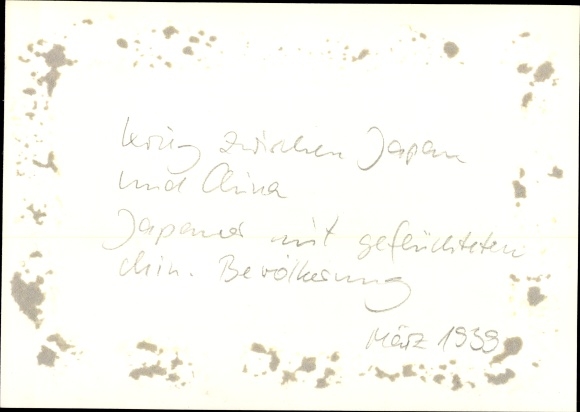 Krieg zwischen Japan
und China
Japaner mit geflüchteten
chin. Bevölkerung
März 1939